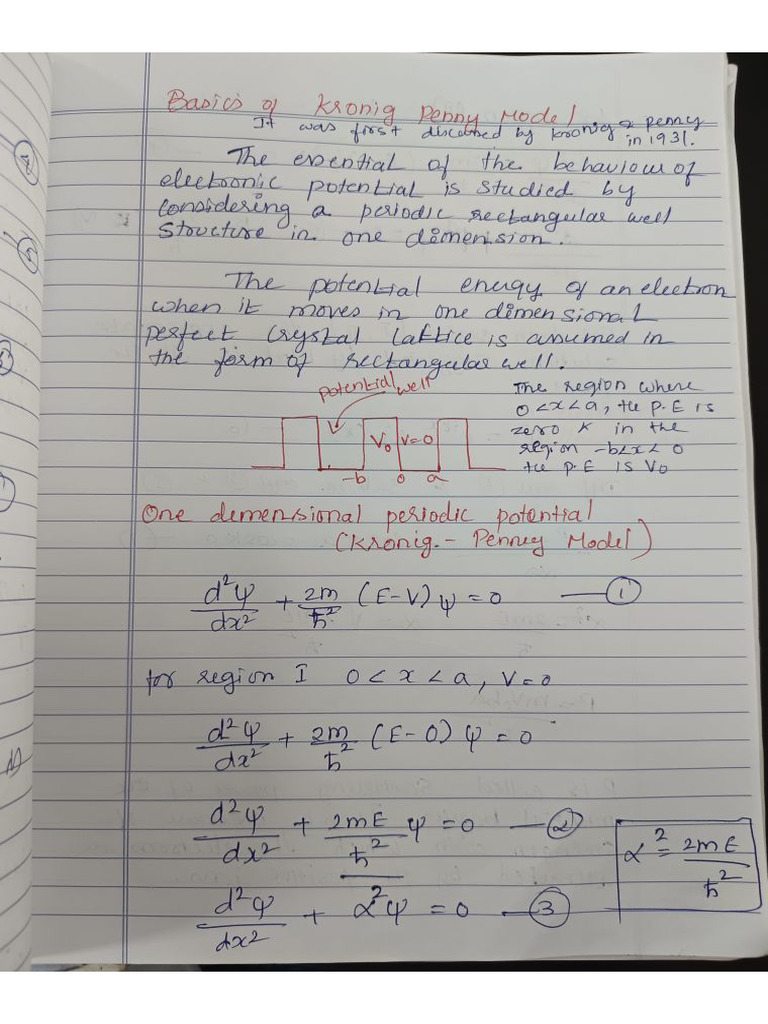 Basics of Kronig Penny Model
It was first discussed by Kronig & penny
in 1931.
The essential of the behaviour of
electronic potential is studied by
considering a periodic rectangular well
structure in one dimension.
The potential energy of an electron
when it moves in one dimensional
perfect crystal lattice is assumed in
the form of rectangular well.
potential well
The region where
0<x<a, the P.E is
zero & in the
region -b<x<0
the P.E is V₀
V₀ V=0
-b 0 a
One dimensional periodic potential
(Kronig.- Penney Model)
d²ψ/dx² + 2m/ħ² (E-V)ψ = 0 — ①
for region I 0 < x < a, V=0
d²ψ/dx² + 2m/ħ² (E-0) ψ = 0
d²ψ/dx² + 2mE/ħ² ψ = 0 — ②
α² = 2mE/ħ²
d²ψ/dx² + α²ψ = 0 — ③